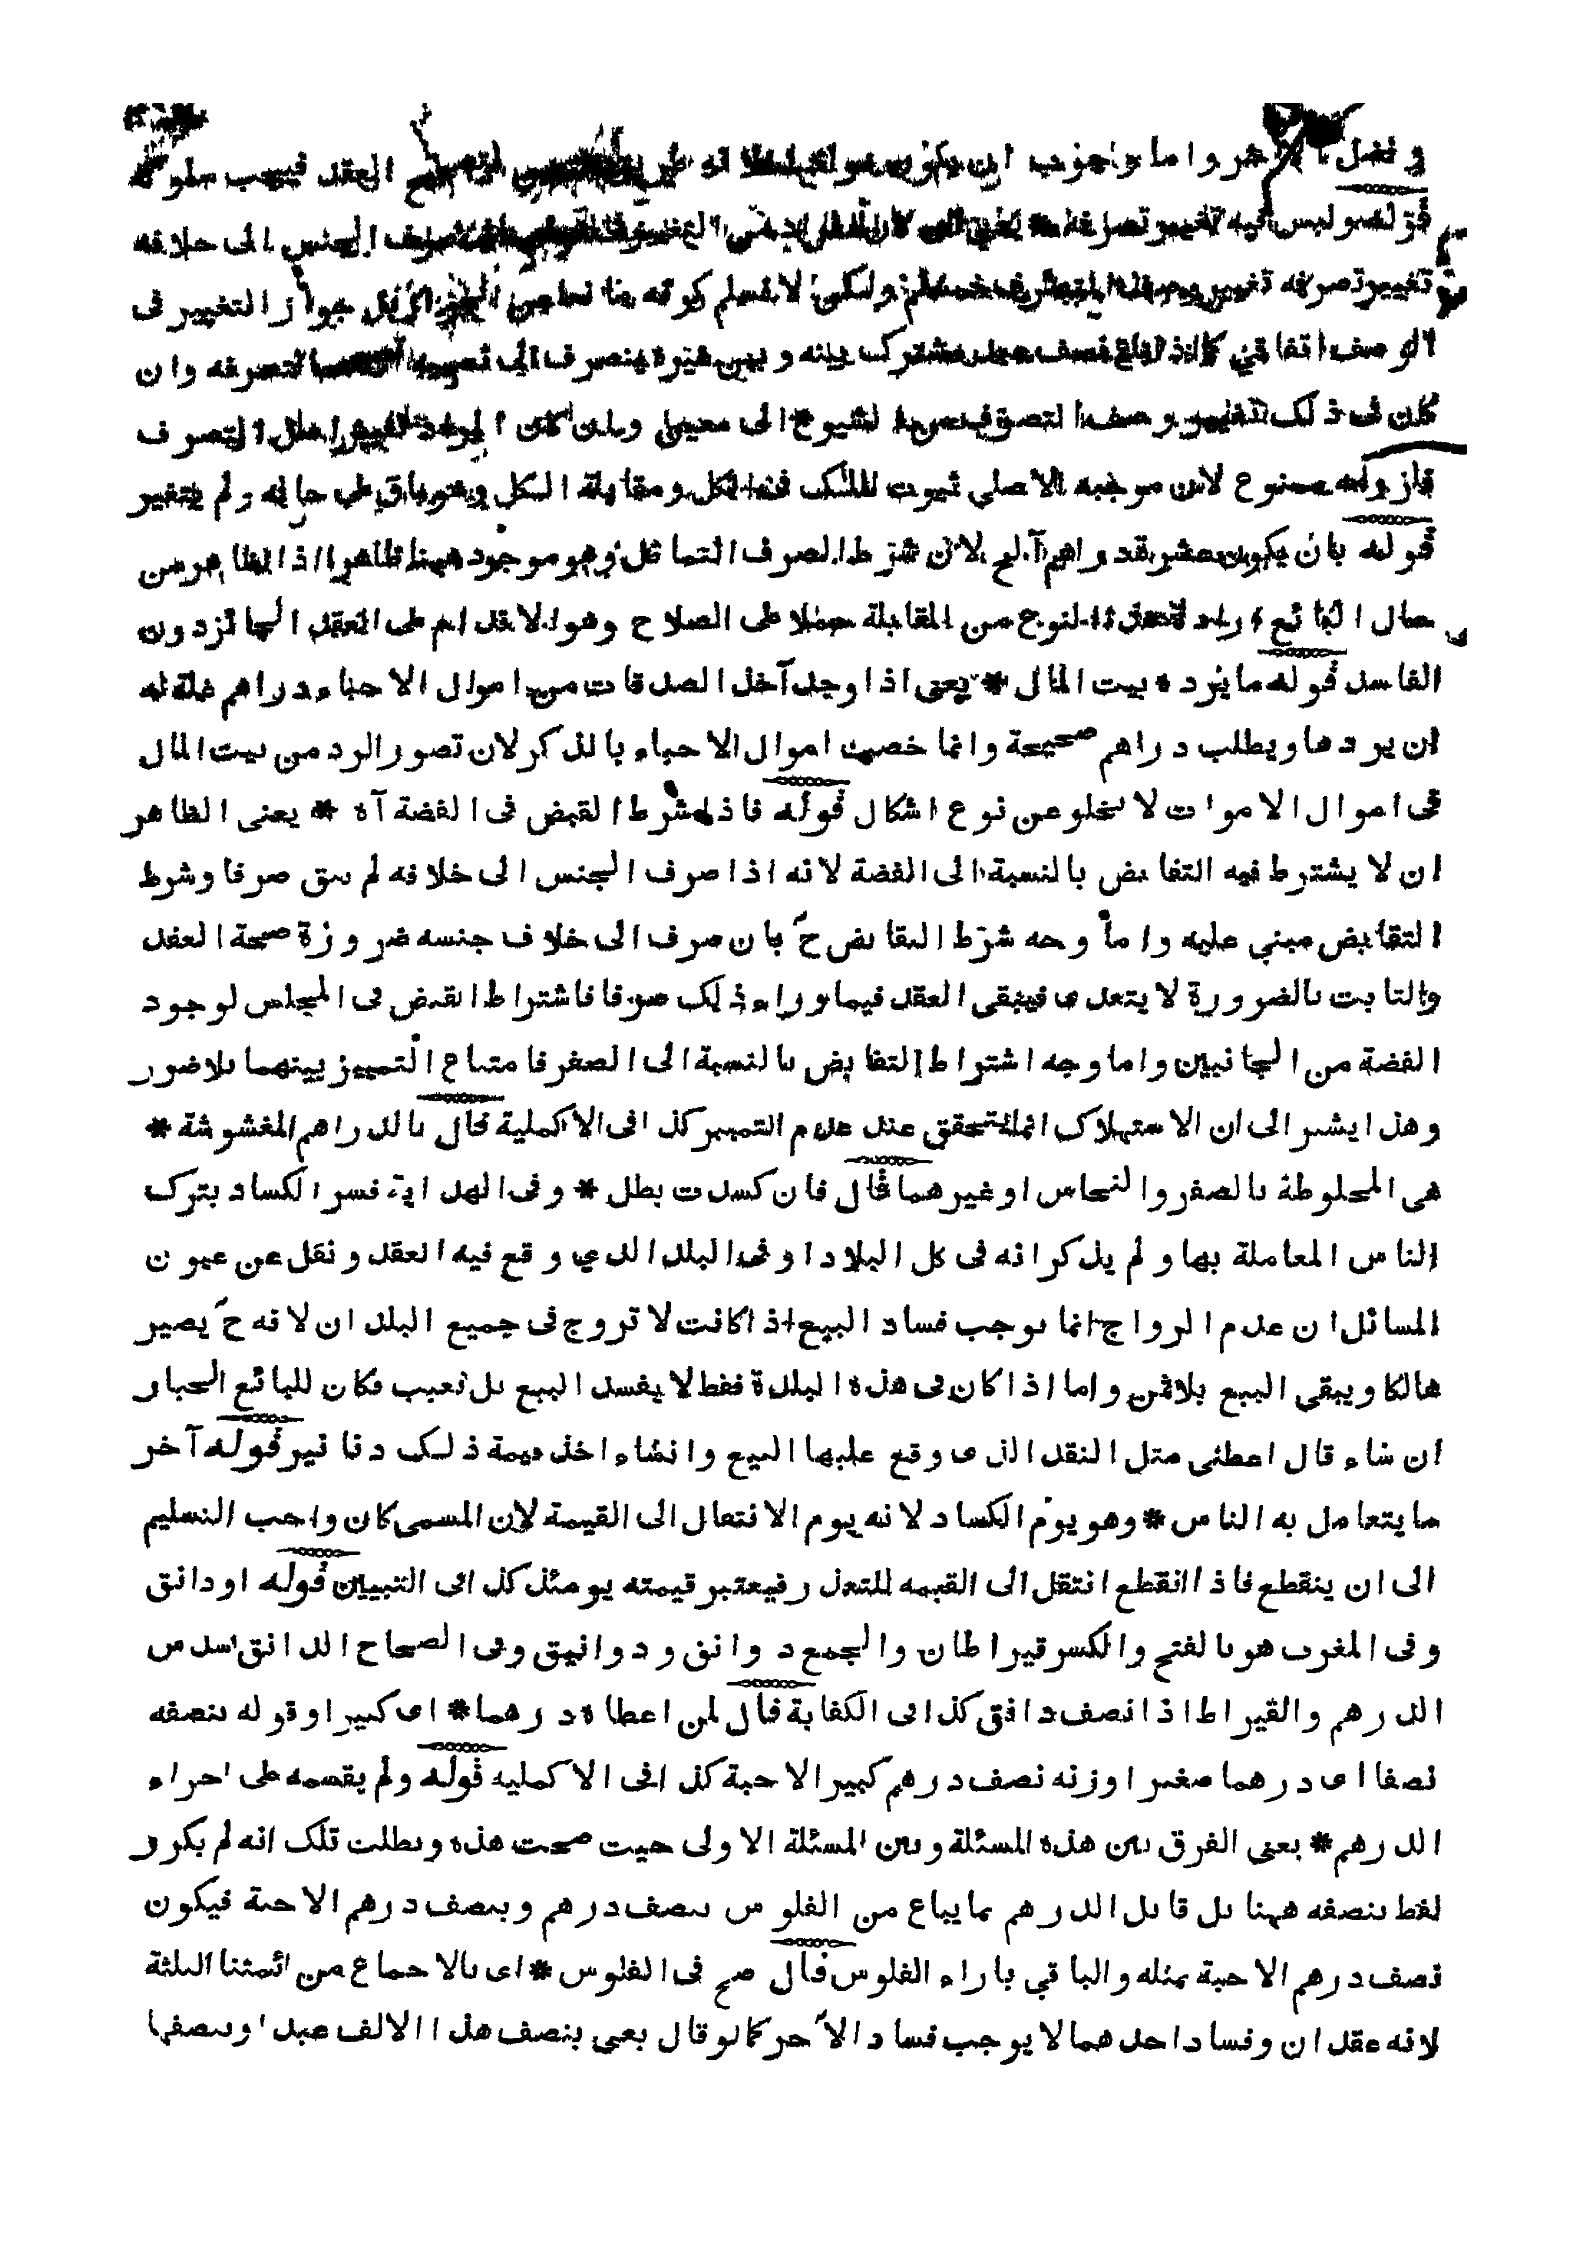 العقد فيجب سلوكه
قوله وليس فيه تغيير تصرفه الجنس الى خلافه
تغيير تصرفه تغيير ولكن لا نسلم كونه جواز التغيير فى
الوصف اتفاقى مشترك بينه و بين غيره ينصرف الى لتصرفه وان
كان فى ذلك تغيير وصف التصرف من الشيوع الى معين التصرف
ممنوع لان موجبه الاصلي ثبوت الملك ومقابلة الكل باق على حاله ولم يتغير
قوله بان يكون عشرة دراهم آلخ لان شرط الصرف التماثل وهو موجود ههنا ظاهرا اذ الظاهر من
حال البائع النوع من المقابلة حملا على الصلاح وهو الاقدام على العقد الجائز دون
الفاسد قوله ما يزده بيت المال * يعنى اذا وجد آخذ الصدقات من اموال الاحياء دراهم غلة له
ان يردها ويطلب دراهم صحيحة وانما خصص اموال الاحياء بالذكر لان تصور الرد من بيت المال
فى اموال الاموات لا يخلو عن نوع اشكال قوله فاذا شرط القبض فى الفضة آه * يعنى الظاهر
ان لا يشترط فيه التقابض بالنسبة الى الفضة لانه اذا صرف الجنس الى خلافه لم يبق صرفا وشرط
التقابض مبني عليه واما وجه شرط التقابض ح بان صرف الى خلاف جنسه ضرورة صحة العقد
والثابت بالضرورة لا يتعدى فيبقى العقد فيما وراء ذلك صرفا فاشتراط القبض فى المجلس لوجود
الفضة من الجانبين واما وجه اشتراط التقابض بالنسبة الى الصفر فامتناع التمييز بينهما بلا ضرر
وهذا يشير الى ان الاستهلاك انما يتحقق عند عدم التمييز كذا فى الاكملية قال بالدراهم المغشوشة *
هى المخلوطة بالصفر والنحاس او غيرهما قال فان كسدت بطل * وفى الهداية فسر الكساد بترك
الناس المعاملة بها ولم يذكر انه فى كل البلاد او فى البلد الذي وقع فيه العقد ونقل عن عيون
المسائل ان عدم الرواج انما يوجب فساد البيع اذا كانت لا تروج فى جميع البلدان لانه ح يصير
هالكا ويبقى البيع بلا ثمن واما اذا كان فى هذه البلدة فقط لا يفسد البيع بل تعيب فكان للبائع الخيار
ان شاء قال اعطنى مثل النقد الذى وقع عليها البيع وان شاء اخذ قيمة ذلك دنانير قوله آخر
ما يتعامل به الناس * وهو يوم الكساد لانه يوم الانتقال الى القيمة لان المسمى كان واجب التسليم
الى ان ينقطع فاذا انقطع انتقل الى القيمه للتعذر فيعتبر قيمته يومئذ كذا فى التبيين قوله او دانق
وفى المغرب هو بالفتح والكسر قيراطان والجمع دوانق ودوانيق وفى الصحاح الدانق اسدس
الدرهم والقيراط اذا نصف دانق كذا فى الكفاية قال لمن اعطاه درهما * اى كبيرا وقوله بنصفه
نصفا اى درهما صغيرا وزنه نصف درهم كبير الا حبة كذا فى الاكمليه قوله ولم يقسمه على اجزاء
الدرهم * يعنى الفرق بين هذه المسئلة وبين المسئلة الاولى حيث صحت هذه وبطلت تلك انه لم يكرر
لفظ بنصفه ههنا بل قابل الدرهم بما يباع من الفلوس بنصف درهم وبنصف درهم الا حبة فيكون
نصف درهم الا حبة بمثله والباقي باراء الفلوس قال صح فى الفلوس * اى بالاجماع من ائمتنا الثلثة
لانه عقدان وفساد احدهما لا يوجب فساد الآخر كما لو قال بعنى بنصف هذا الالف عبدا وبنصفها